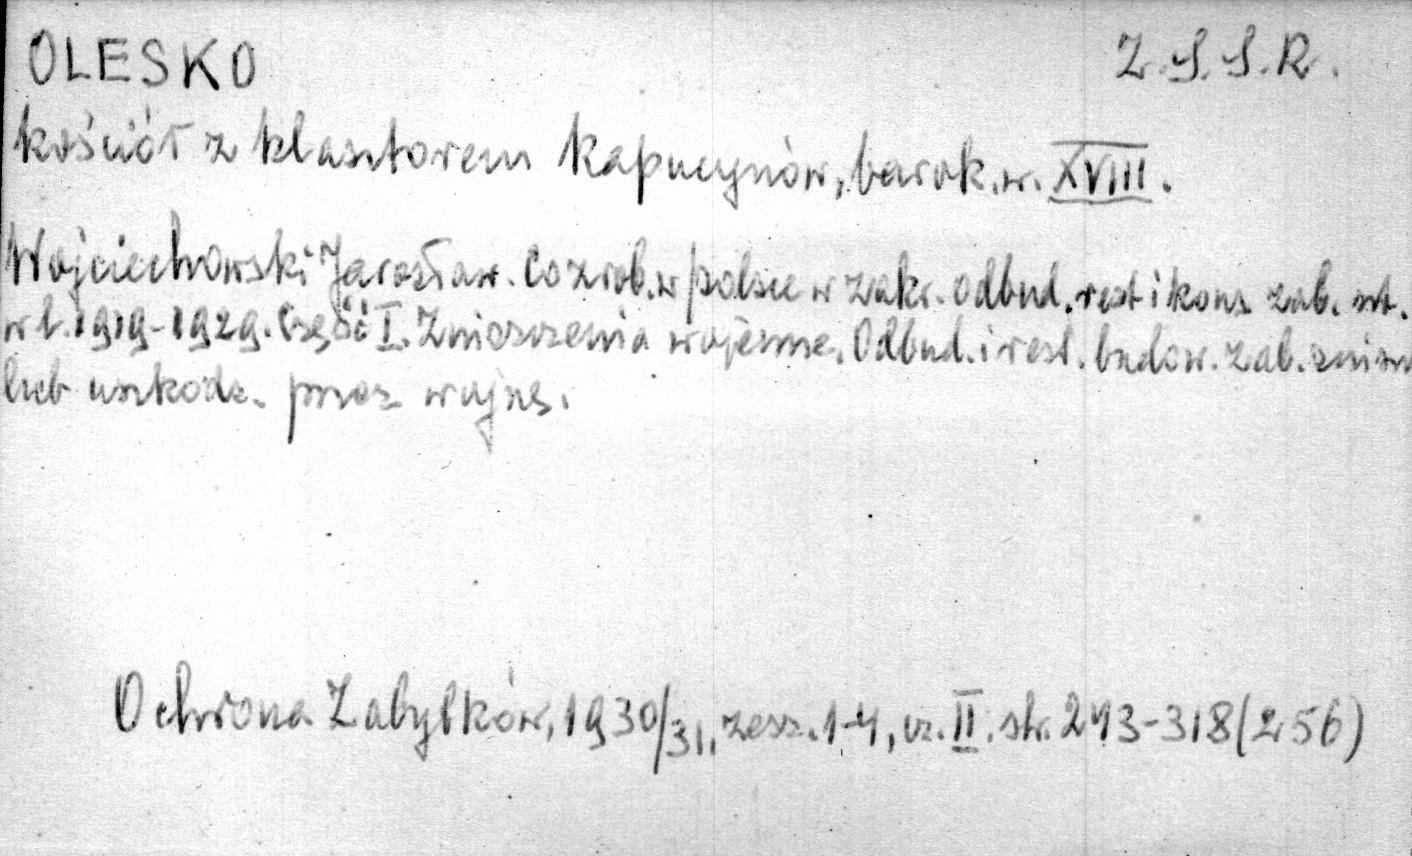 OLESKO Z.S.S.R.
kościół z klasztorem Kapucynów, barok. w. XVIII.
Wojciechowski Jarosław. Co zrob. w Polsce w zakr. odbud. rest i kons zab. szt.
w l. 1919-1929. Część I. Zniszczenia wojenne. Odbud. i rest. budow. zab. zniszcz
lub uszkodz. przez wojnę.
Ochrona Zabytków, 1930/31, zesz. 1-4, cz. II. str. 243-318 (256)